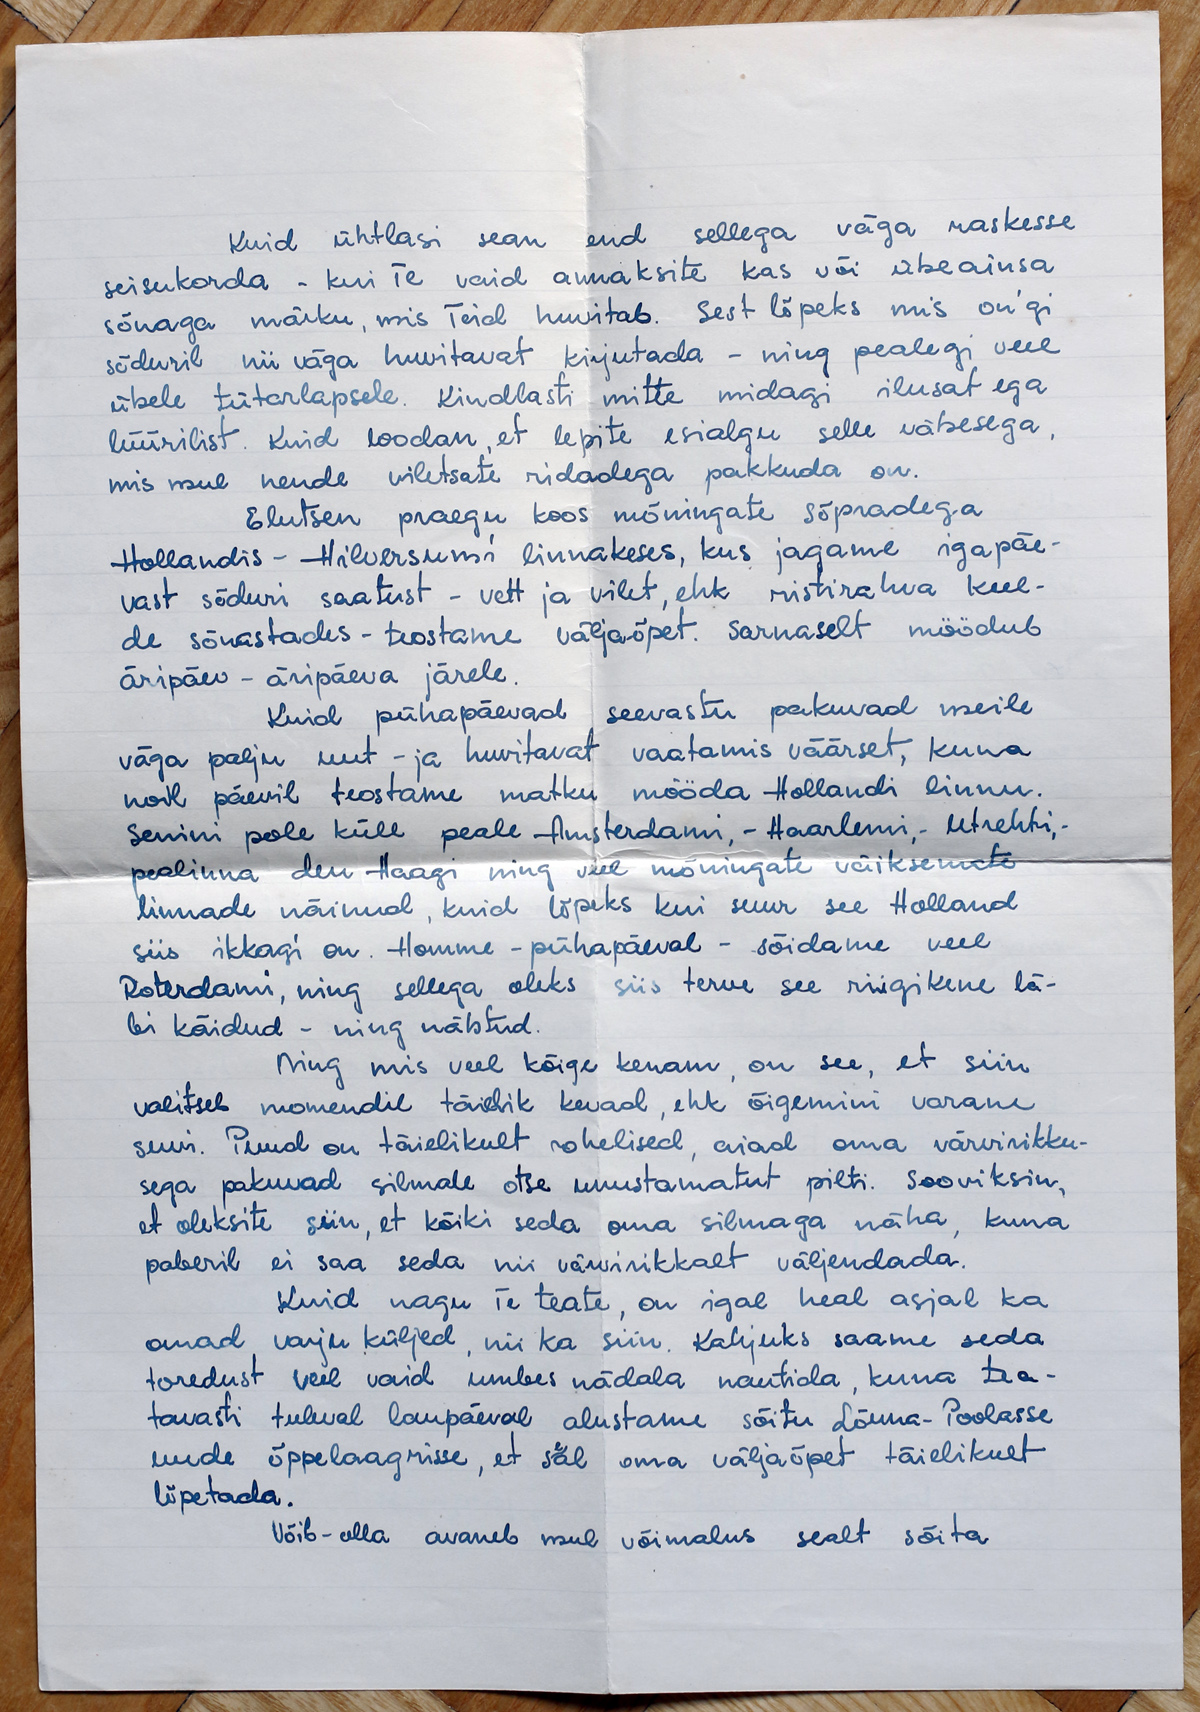 Kuid ühtlasi sean end sellega väga raskesse
seisukorda - kui Te vaid annaksite kas või üheainsa
sõnaga märku, mis Teid huvitab. Sest lõpeks mis on'gi
sõduril nii väga huvitavat kirjutada - ning pealegi veel
ühele tütarlapsele. Kindlasti mitte midagi ilusat ega
lüürilist. Kuid loodan, et lepite esialgu selle vähesega,
mis mul nende viletsate ridadega pakkuda on.
Elutsen praegu koos mõningate sõpradega
Hollandis - Hilversumi linnakeses, kus jagame igapäe-
vast sõduri saatust - vett ja vilet, ehk ristirahva keel-
de sõnastades - teostame väljaõpet. Sarnaselt möödub
äripäev - äripäeva järele.
Kuid pühapäevad seevastu pakuvad meile
väga palju uut - ja huvitavat vaatamis väärset, kuna
noil päevil teostame matku mööda Hollandi linnu.
Senini pole küll peale Amsterdami, - Haarlemi, - Utrehti, -
pealinna den Haagi ning veel mõningate väiksemate
linnade näinud, kuid lõpeks kui suur see Holland
siis ikkagi on. Homme - pühapäeval - sõidame veel
Roterdami, ning sellega oleks siis terve see riigikene lä-
bi käidud - ning nähtud.
Ning mis veel kõige kenam, on see, et siin
valitseb momendil täielik kevad, ehk õigemini varane
suvi. Puud on täielikult rohelised, aiad oma värvirikku-
sega pakuvad silmale otse unustamatut pilti. Sooviksin,
et oleksite siin, et kõiki seda oma silmaga näha, kuna
paberil ei saa seda nii värvirikkalt väljendada.
Kuid nagu Te teate, on igal heal asjal ka
omad varju küljed, nii ka siin. Kahjuks saame seda
toredust veel vaid umbes nädala nautida, kuna tea-
tavasti tuleval laupäeval alustame sõitu Lõuna-Poolasse
uude õppelaagrisse, et sääl oma väljaõpet täielikult
lõpetada.
Võib-olla avaneb mul võimalus sealt sõita